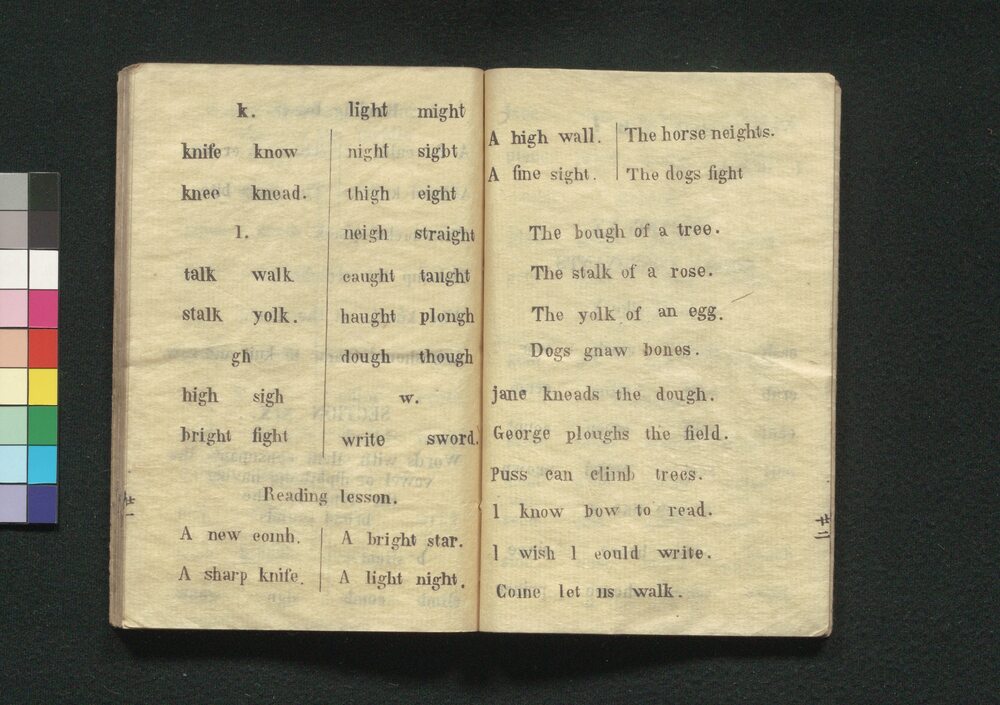 k.
knife know
knee knead.
l.
talk walk
stalk yolk.
gh
high sigh
bright fight
light might
night sigbt
thigh eight
neigh straight
caught taught
haught plongh
dough though
w.
write sword.
Reading lesson.
A new comb.
A sharp knife.
A bright star.
A light night.
A high wall.
A fine sight.
The horse neights.
The dogs fight
The bough of a tree.
The stalk of a rose.
The yolk of an egg.
Dogs gnaw bones.
jane kneads the dough.
George ploughs the field.
Puss can climb trees.
l know bow to read.
l wish l eould write.
Come let ns walk.